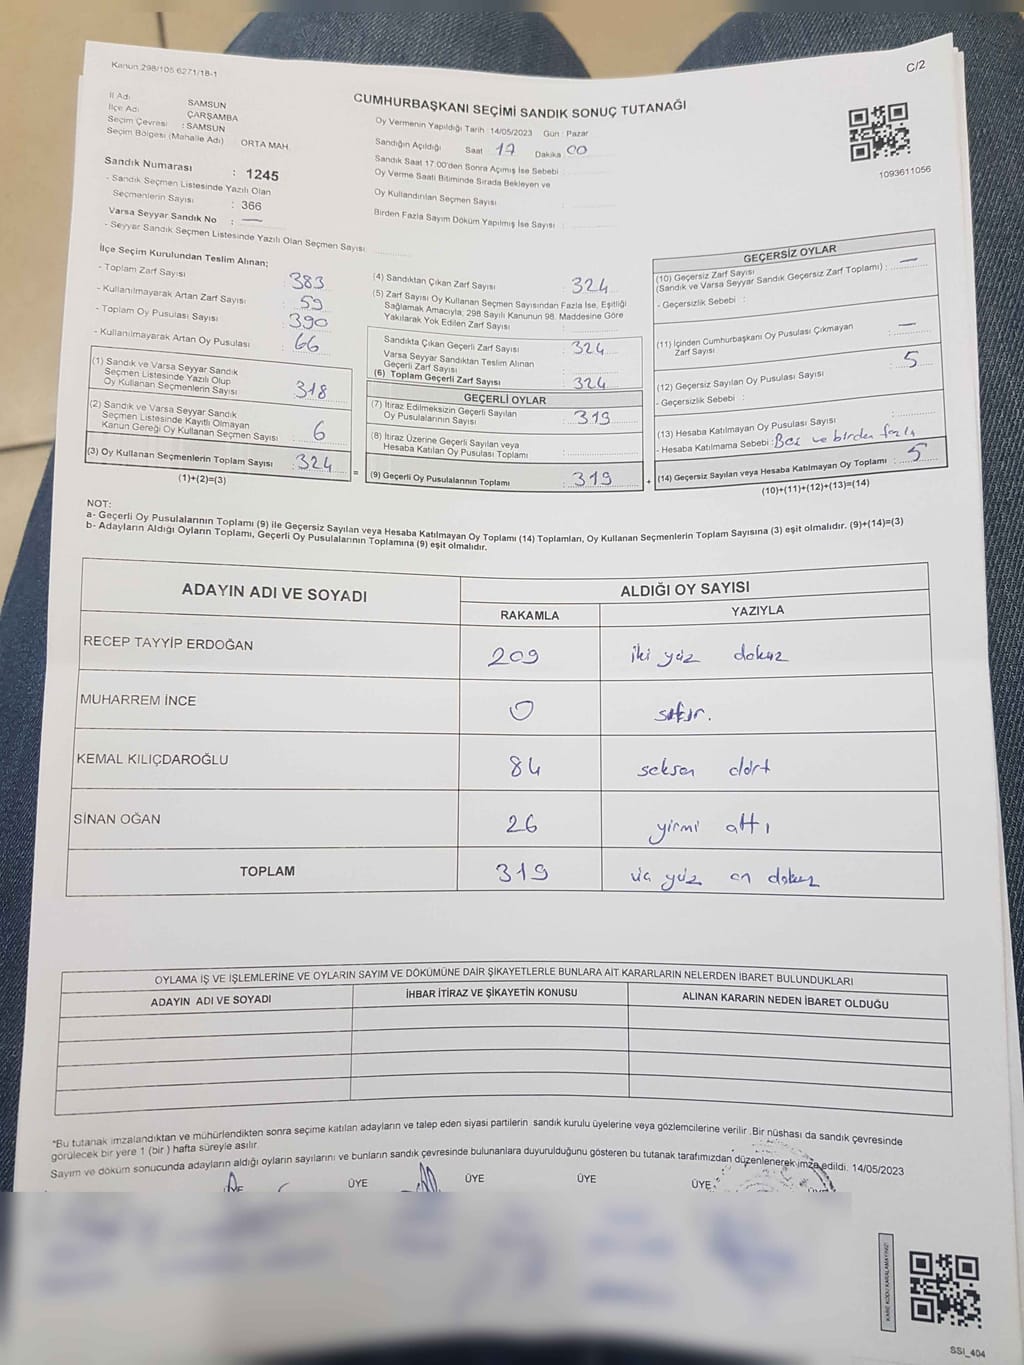 Kanun 298/105 6271/18-1
C/2
CUMHURBAŞKANI SEÇİMİ SANDIK SONUÇ TUTANAĞI
İl Adı SAMSUN
İlçe Adı ÇARŞAMBA
Seçim Çevresi : SAMSUN
Seçim Bölgesi (Mahalle Adı) ORTA MAH.
Sandık Numarası : 1245
- Sandık Seçmen Listesinde Yazılı Olan
Seçmenlerin Sayısı : 366
Varsa Seyyar Sandık No : —
- Seyyar Sandık Seçmen Listesinde Yazılı Olan Seçmen Sayısı
Oy Vermenin Yapıldığı Tarih : 14/05/2023 Gün : Pazar
Sandığın Açıldığı Saat 17 Dakika 00
Sandık Saat 17.00'den Sonra Açımış İse Sebebi :
Oy Verme Saati Bitiminde Sırada Bekleyen ve
Oy Kullandırılan Seçmen Sayısı :
Birden Fazla Sayım Döküm Yapılmış İse Sayısı :
1093611056
İlçe Seçim Kurulundan Teslim Alınan;
- Toplam Zarf Sayısı 383
- Kullanılmayarak Artan Zarf Sayısı 59
- Toplam Oy Pusulası Sayısı 390
- Kullanılmayarak Artan Oy Pusulası 66
(1) Sandık ve Varsa Seyyar Sandık
Seçmen Listesinde Yazılı Olup
Oy Kullanan Seçmenlerin Sayısı 318
(2) Sandık ve Varsa Seyyar Sandık
Seçmen Listesinde Kayıtlı Olmayan
Kanun Gereği Oy Kullanan Seçmen Sayısı 6
(3) Oy Kullanan Seçmenlerin Toplam Sayısı 324
(1)+(2)=(3)
(4) Sandıktan Çıkan Zarf Sayısı 324
(5) Zarf Sayısı Oy Kullanan Seçmen Sayısından Fazla İse, Eşitliği
Sağlamak Amacıyla, 298 Sayılı Kanunun 98. Maddesine Göre
Yakılarak Yok Edilen Zarf Sayısı :
Sandıkta Çıkan Geçerli Zarf Sayısı 324
Varsa Seyyar Sandıktan Teslim Alınan
Geçerli Zarf Sayısı
(6) Toplam Geçerli Zarf Sayısı 324
GEÇERLİ OYLAR
(7) İtiraz Edilmeksizin Geçerli Sayılan
Oy Pusulalarının Sayısı 319
(8) İtiraz Üzerine Geçerli Sayılan veya
Hesaba Katılan Oy Pusulası Toplamı
= (9) Geçerli Oy Pusulalarının Toplamı 319 +
GEÇERSİZ OYLAR
(10) Geçersiz Zarf Sayısı
(Sandık ve Varsa Seyyar Sandık Geçersiz Zarf Toplamı) : —
- Geçersizlik Sebebi :
(11) İçinden Cumhurbaşkanı Oy Pusulası Çıkmayan
Zarf Sayısı : —
(12) Geçersiz Sayılan Oy Pusulası Sayısı 5
- Geçersizlik Sebebi :
(13) Hesaba Katılmayan Oy Pusulası Sayısı
- Hesaba Katılmama Sebebi : Boş ve birden fazla
(14) Geçersiz Sayılan veya Hesaba Katılmayan Oy Toplamı 5
(10)+(11)+(12)+(13)=(14)
NOT:
a- Geçerli Oy Pusulalarının Toplamı (9) ile Geçersiz Sayılan veya Hesaba Katılmayan Oy Toplamı (14) Toplamları, Oy Kullanan Seçmenlerin Toplam Sayısına (3) eşit olmalıdır. (9)+(14)=(3)
b- Adayların Aldığı Oyların Toplamı, Geçerli Oy Pusulalarının Toplamına (9) eşit olmalıdır.
ADAYIN ADI VE SOYADI ALDIĞI OY SAYISI
RAKAMLA YAZIYLA
RECEP TAYYİP ERDOĞAN 209 iki yüz dokuz
MUHARREM İNCE 0 sıfır.
KEMAL KILIÇDAROĞLU 84 seksen dört
SİNAN OĞAN 26 yirmi altı
TOPLAM 319 üç yüz on dokuz
OYLAMA İŞ VE İŞLEMLERİNE VE OYLARIN SAYIM VE DÖKÜMÜNE DAİR ŞİKAYETLERLE BUNLARA AİT KARARLARIN NELERDEN İBARET BULUNDUKLARI
ADAYIN ADI VE SOYADI İHBAR İTİRAZ VE ŞİKAYETİN KONUSU ALINAN KARARIN NEDEN İBARET OLDUĞU
*Bu tutanak imzalandıktan ve mühürlendikten sonra seçime katılan adayların ve talep eden siyasi partilerin sandık kurulu üyelerine veya gözlemcilerine verilir. Bir nüshası da sandık çevresinde
görülecek bir yere 1 (bir) hafta süreyle asılır.
Sayım ve döküm sonucunda adayların aldığı oyların sayılarını ve bunların sandık çevresinde bulunanlara duyurulduğunu gösteren bu tutanak tarafımızdan düzenlenerek imza edildi. 14/05/2023
ÜYE ÜYE ÜYE ÜYE
KARE KODU KARALAMAYINIZ!
SSI_404